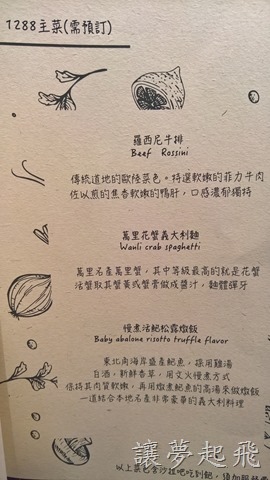 1288主菜(需預訂)
羅西尼牛排
Beef Rossini
傳統道地的歐陸菜色。特選軟嫩的菲力牛肉
佐以煎的焦香軟嫩的鴨肝，口感濃郁獨特
萬里花蟹義大利麵
Wanli crab spaghetti
萬里名產萬里蟹，其中等級最高的就是花蟹
活蟹取其蟹黃或蟹膏做成醬汁，麵體彈牙
慢煮活鮑松露燉飯
Baby abalone risotto truffle flavor
東北角海岸盛產鮑魚，採用雞湯
白酒，新鮮香草，用文火慢煮方式
保持其肉質軟嫩，再用燉煮鮑魚的高湯來做燉飯
一道結合本地名產非常豪華的義大利料理
以上菜色含沙拉吧吃到飽
讓夢起飛